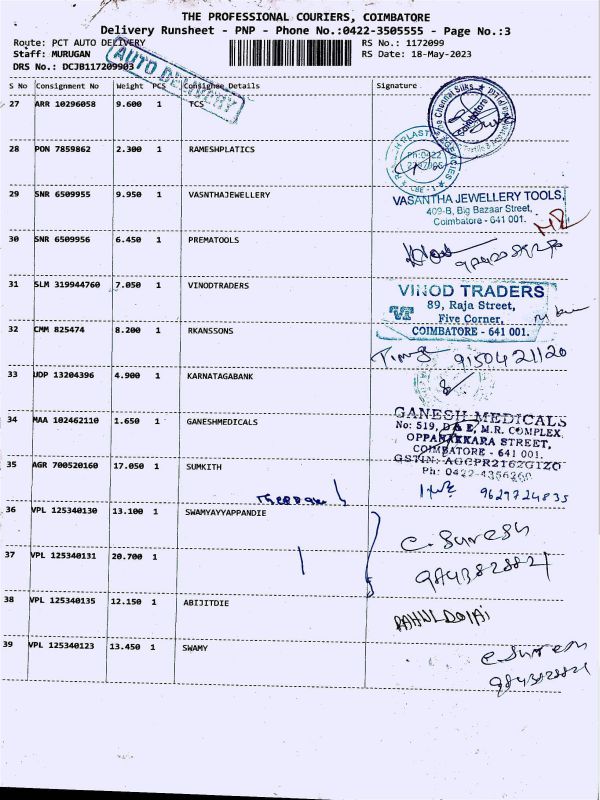 THE PROFESSIONAL COURIERS, COIMBATORE
Delivery Runsheet - PNP - Phone No.:0422-3505555 - Page No.:3
Route: PCT AUTO DELIVERY RS No.: 1172099
Staff: MURUGAN RS Date: 18-May-2023
DRS No.: DCJB117209903
AUTO DELIVERY
S No Consignment No Weight PCS Consignee Details Signature
27 ARR 10296058 9.600 1 TCS
The Chennai Silks
Coimbatore
28 PON 7859862 2.300 1 RAMESHPLATICS
Ph:0422
CBE - 1
29 SNR 6509955 9.950 1 VASNTHAJEWELLERY
VASANTHA JEWELLERY TOOLS,
409-B, Big Bazaar Street,
Coimbatore - 641 001.
30 SNR 6509956 6.450 1 PREMATOOLS
31 SLM 319944760 7.050 1 VINODTRADERS
VINOD TRADERS
VT 89, Raja Street,
Five Corner,
COIMBATORE - 641 001.
32 CMM 825474 8.200 1 RKANSSONS
9150421120
33 UDP 13204396 4.900 1 KARNATAGABANK
34 MAA 102462110 1.650 1 GANESHMEDICALS
GANESH MEDICALS
No: 519, D & E, M.R. COMPLEX,
OPPANAKKARA STREET,
COIMBATORE - 641 001.
GSTIN: AGCPR2162G1ZO
Ph: 0422-4356260
35 AGR 700520160 17.050 1 SUMKITH
9629724835
36 VPL 125340130 13.100 1 SWAMYAYYAPPANDIE
C. Suresh
37 VPL 125340131 20.700 1
9843828821
38 VPL 125340135 12.150 1 ABIJITDIE
39 VPL 125340123 13.450 1 SWAMY
C. Suresh
9843828821